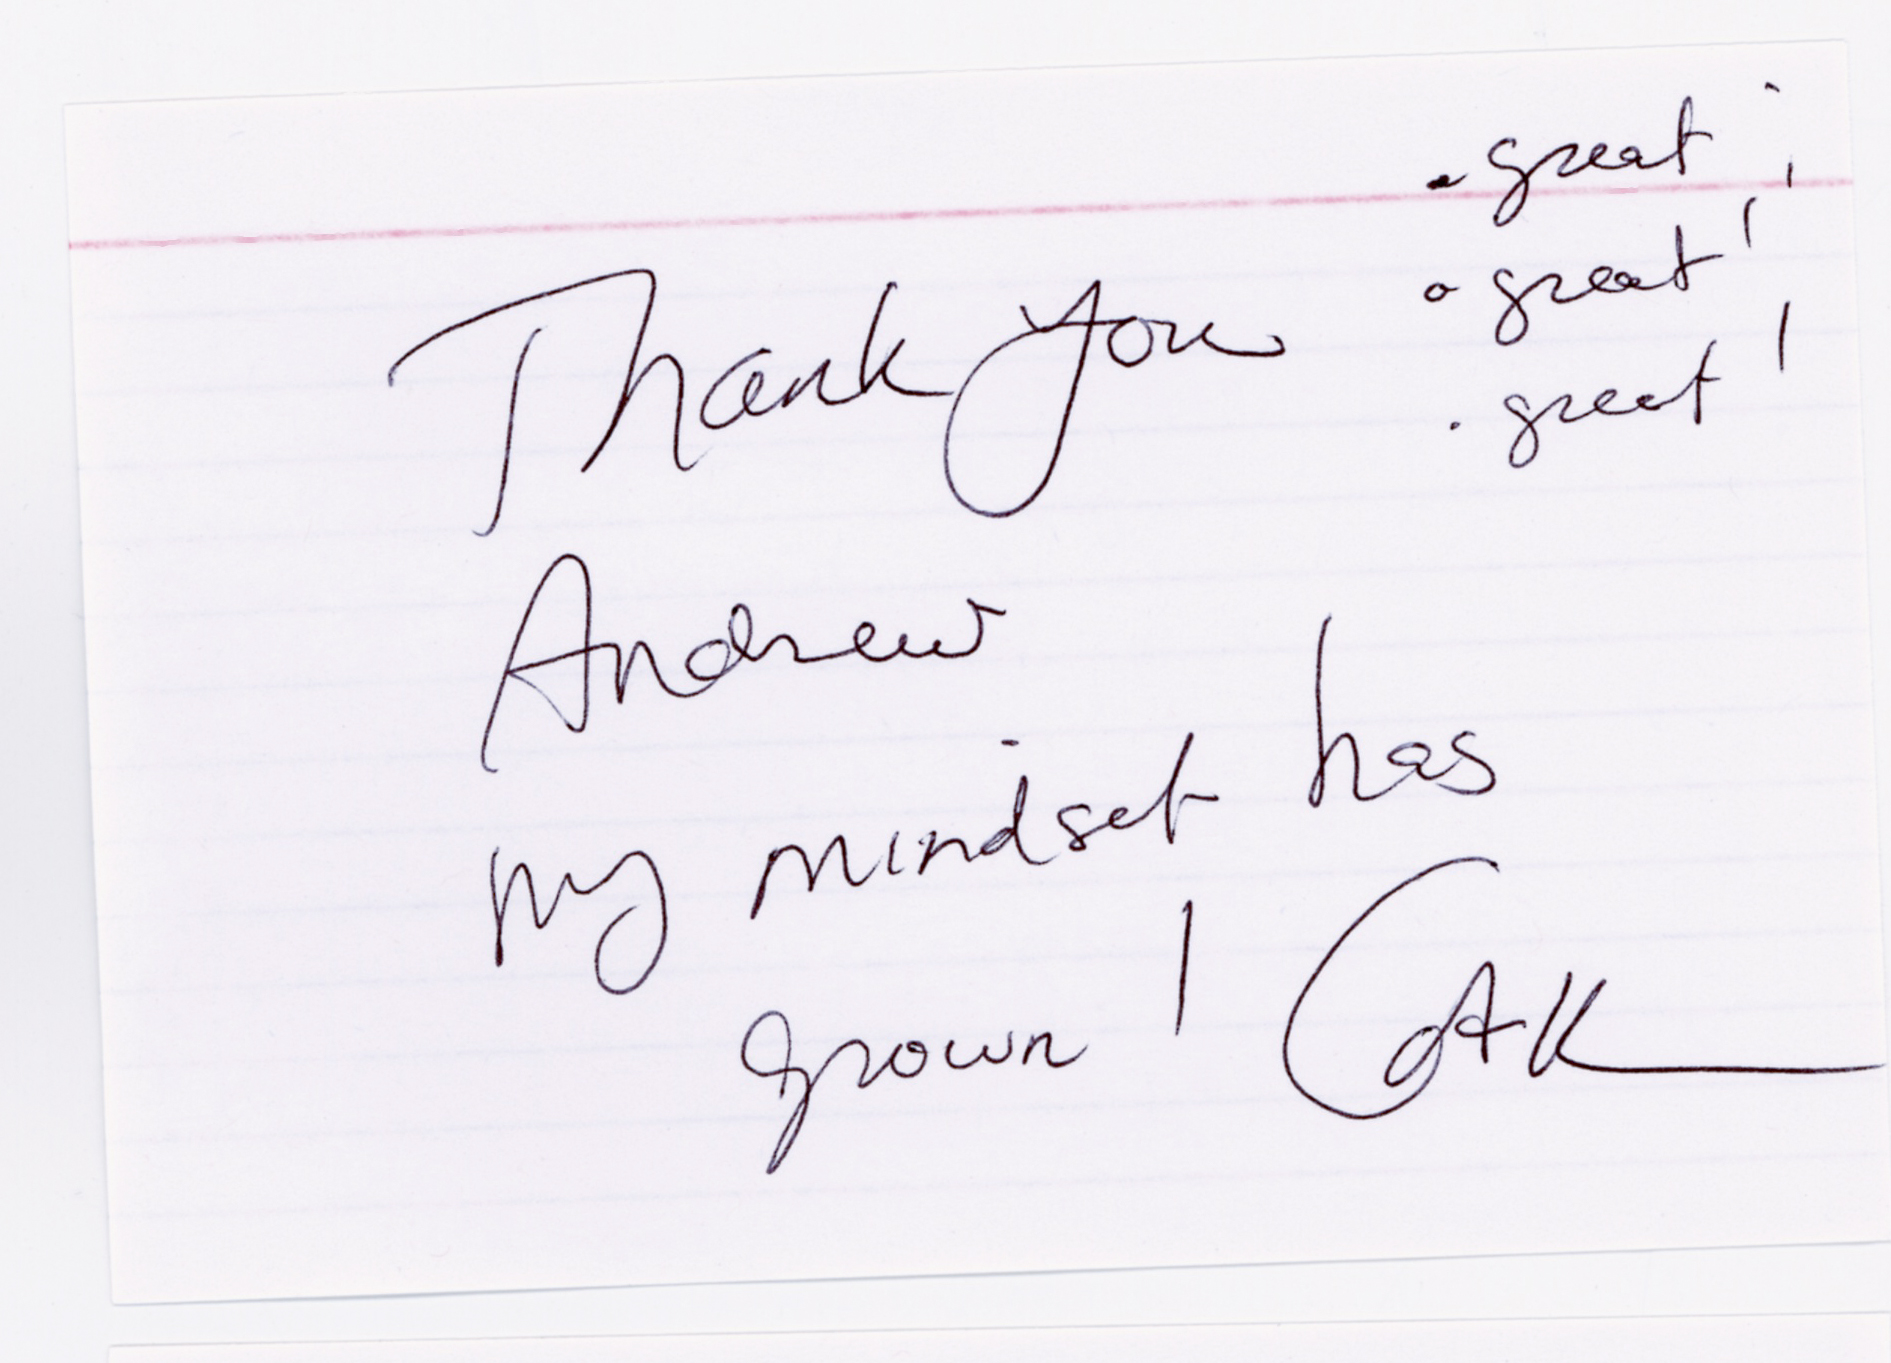 . great !
. great !
. great !
Thank you
Andrew
My mindset has
grown !